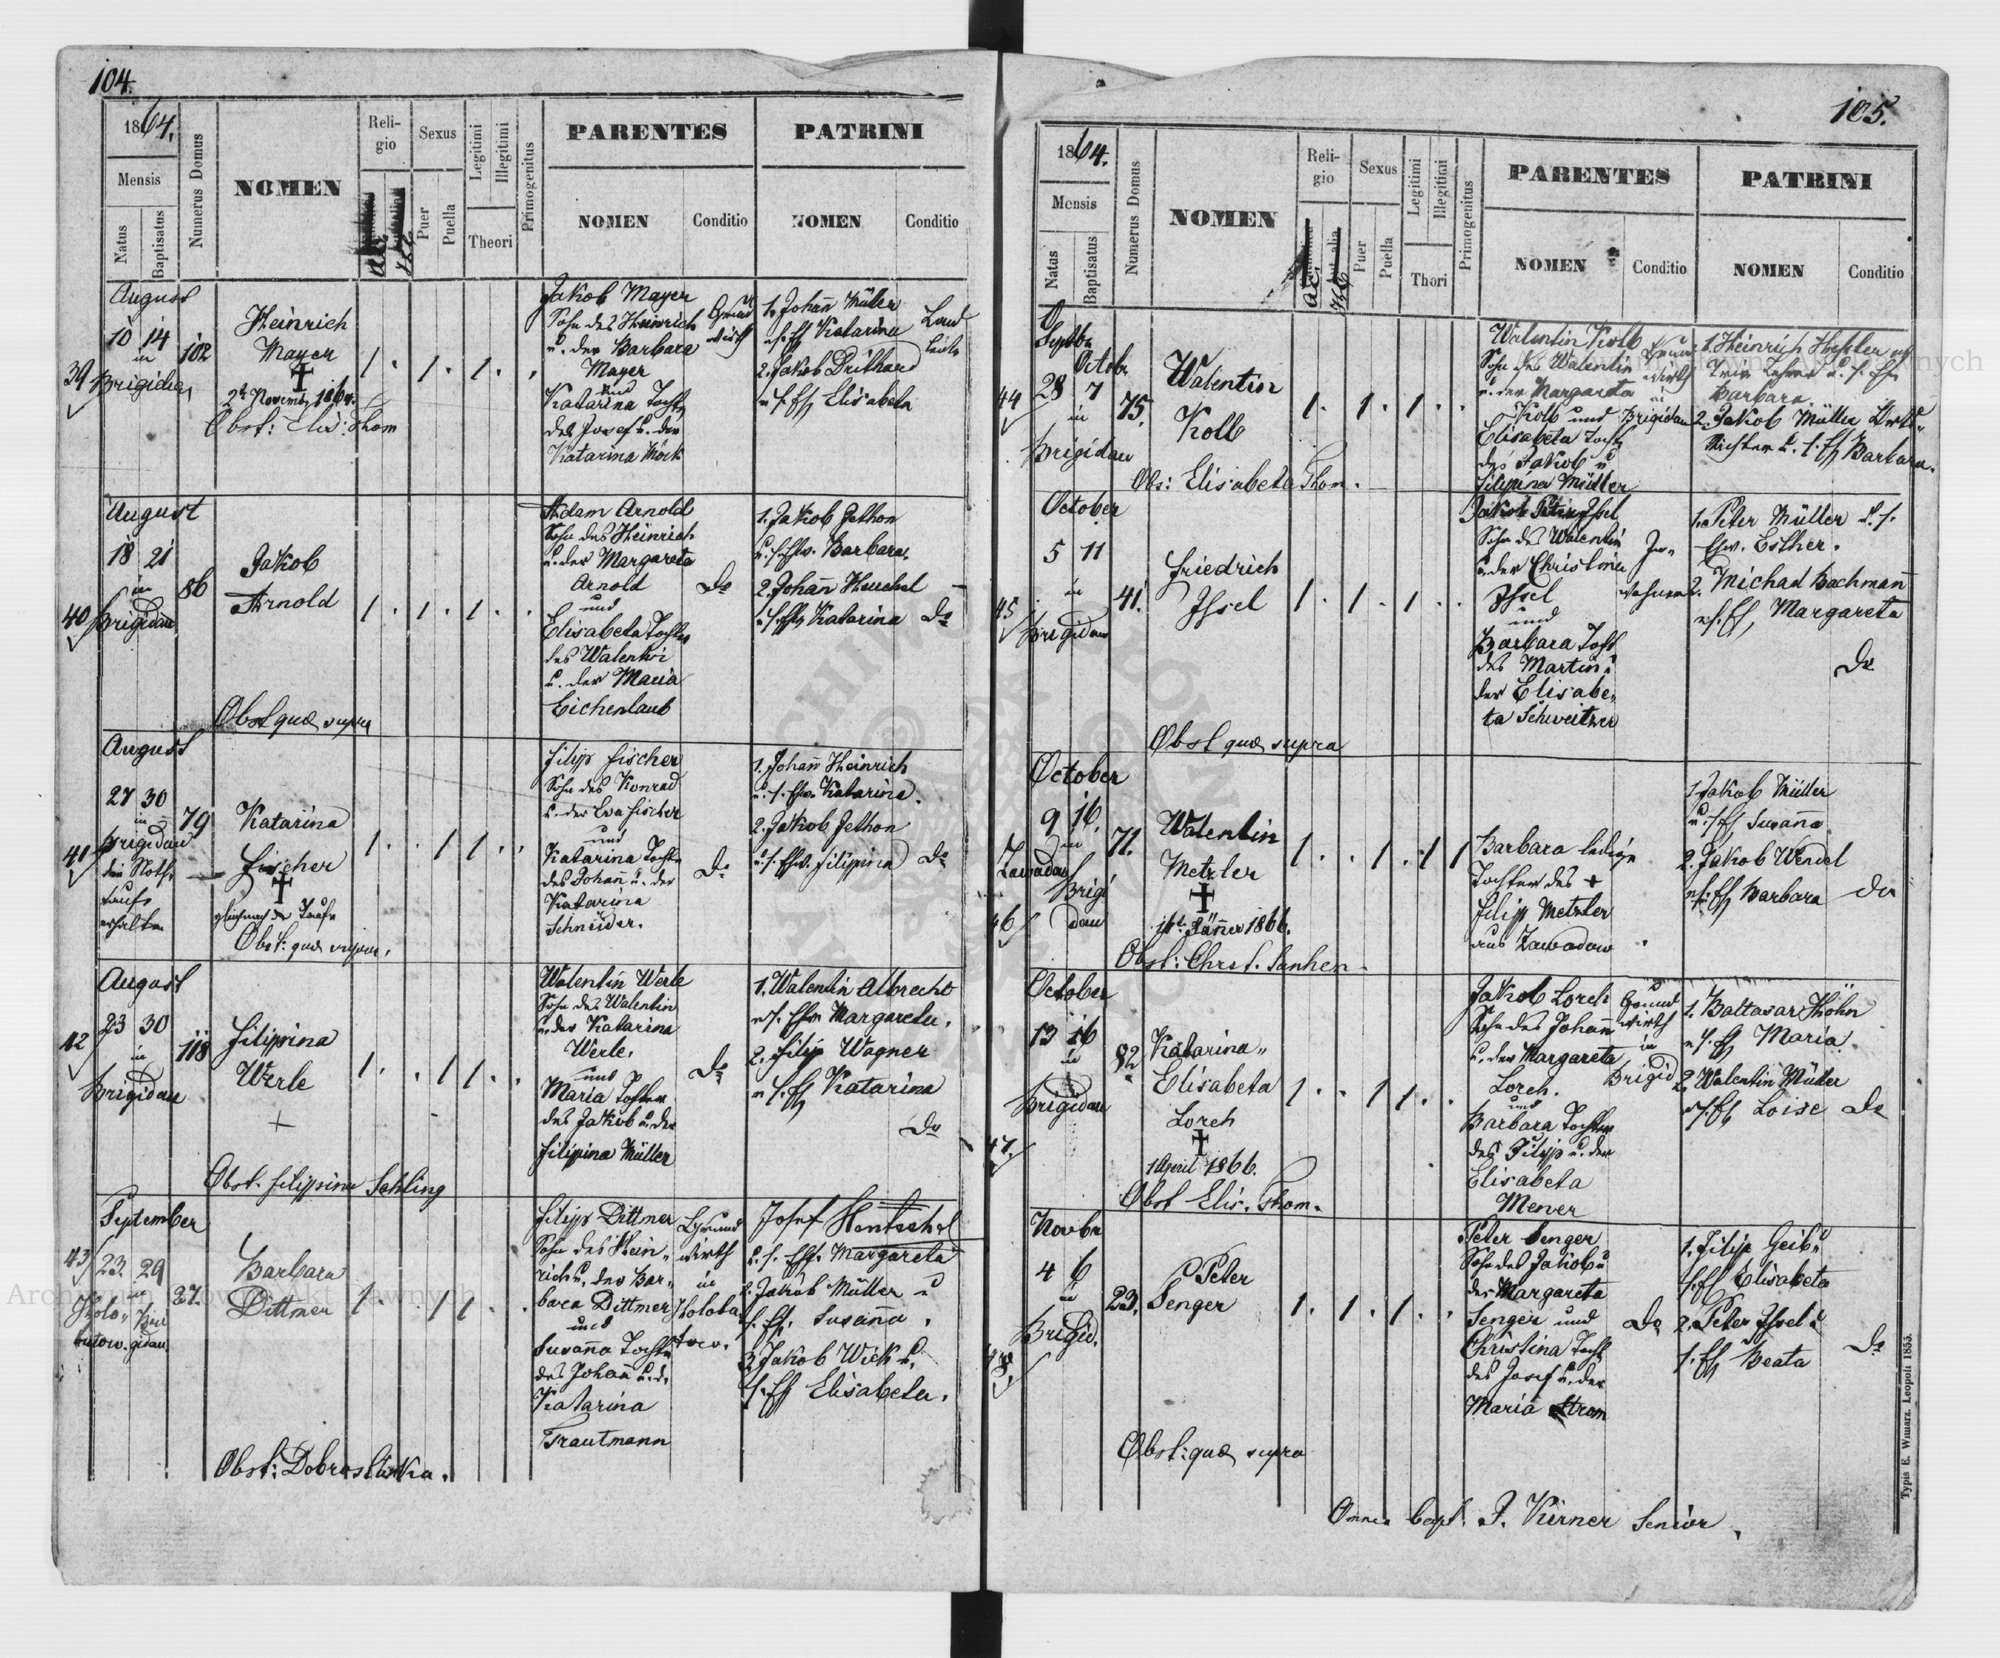 104.
1864.
Mensis
Natus
Baptisatus
Numerus Domus
NOMEN
Religio
AC
HC
Sexus
Puer
Puella
Legitimi
Illegitimi
Theori
Primogenitus
PARENTES
NOMEN
Conditio
PATRINI
NOMEN
Conditio
39
August
10 14
in
Brigidau
102
Heinrich
Mayer
2t Novemb 1864.
Obst: Elis: Thom
1 . 1 . 1 . .
Jakob Mayer
Sohn des Heinrich
u. der Barbara
Mayer
und
Katarina Tocht
des Josef u. der
Katarina Mock
Grund
wirth
1. Johañ Müller
u. s. Eh Katarina
2. Jakob
u s. Eh Elisabeta
Land
leute
40
August
18 21
in
Brigidau
86
Jakob
Arnold
1 . 1 . 1 . .
Obst quæ supra
Adam Arnold
Sohn des Heinrich
u. der Margareta
Arnold
und
Elisabeta Tochter
des Walentin
u. der Maria
Eichenlaub
Do
1. Jakob Jethon
u. s. Ehw. Barbara.
2. Johañ Heuchel
u. s. Eh Katarina Do
41
August
27 30
in
Brigidau
die Noth-
taufe
erhalten
79
Katarina
Fischer
gleich nach der Taufe
Obst: quæ supra.
1 . . 1 1 . .
Filip Fischer
Sohn des Konrad
u. der Eva Fischer
und
Katarina Tocht
des Johañ u. der
Katarina
Schneider.
Do
1. Johañ Heinrich
u. s. Ehw. Katarina.
2. Jakob Jethon
u. s. Ehw. Filippina Do
42
August
23 30
in
Brigidau
118
Filippina
Werle
1 . . 1 1 . .
Obst. Filippina Sahling
Walentin Werle
Sohn des Walentin
u. der Katarina
Werle.
und
Maria Tochter
des Jakob u. der
Filippina Müller
Do
1. Walentin Albrecht
u. s. Ehw Margareta.
2. Filip Wagner
u. s. Eh Katarina
Do
43
September
23 29
in
Brigidau
27.
Barbara
Dittmer
1 . . 1 1 . .
Obst:
Filip Dittmer
Sohn des Hein-
rich u. der Bar-
bara Dittmer
und
Susaña Tocht
des Johañ u. d.
Katarina
Trautmann
Grund
wirth
in
Holobu
tow.
Josef Hentschel
u. s. Eh. Margareta
2. Jakob Müller u
s. Eh. Susaña.
3. Jakob Wick u.
s. Eh Elisabeta.
105.
1864.
Mensis
Natus
Baptisatus
Numerus Domus
NOMEN
Religio
AC
HC
Sexus
Puer
Puella
Legitimi
Illegitimi
Thori
Primogenitus
PARENTES
NOMEN
Conditio
PATRINI
NOMEN
Conditio
44
Septbr
Octobr
28 7
in
Brigidau
75.
Walentin
Kolb
Obs: Elisabeta Thom.
1 . 1 . 1 . .
Walentin Kolb
Sohn des Walentin
u. der Margareta
Kolb und
Elisabeta Tocht
des Jakob u
Filipina Müller
Grund
wirth
in
Brigidau
1. Heinrich
Barbara.
2. Jakob Müller Orts-
richter u. s. Eh Barbara.
45
October
5 11
in
Brigidau
41.
Friedrich
Issel
1 . 1 . 1 . .
Obst quæ supra
Issel
Sohn des Walentin
u. der Christina
Issel
und
Barbara Tocht
des Martin u
der Elisabe-
ta Schweitzer
In-
wohner
1. Peter Müller u. s.
Ehw. Esther.
2. Michael Bachmañ
u. s. Eh, Margareta
Do
46
October
9 16.
in
Zawadow
Brigi
dau
71.
Walentin
Metzler
Jäñer 1866.
1 . . 1 . 1 1
Barbara ledige
Tochter des +
Filip Metzler
aus Zawadow
1. Jakob Müller
u. s. Eh Susaña.
2. Jakob Wendel
u. s. Eh Barbara Do
47.
October
13 16
in
Brigidau
82
Katarina
Elisabeta
Lorch
1 April 1866.
Obst Elis. Thom.
1 . . 1 1 . .
Jakob Lorch
Sohn des Johañ
u. der Margareta
Lorch.
und
Barbara Tochter
des Filip u. der
Elisabeta
Mener
Grund
wirth
in
Brigid
1. Baltasar Höhn
u. s. Eh Maria.
2. Walentin Müller
u. s. Eh Loise Do
48.
Novbr
4 6
in
Brigid.
23.
Peter
Senger
1 . 1 . 1 . .
Obst: quæ supra
Peter Senger
Sohn des Jakob u
der Margareta
Senger und
Christina Tocht
des Josef u. der
Maria
Do
1. Filip Geib u
s. Eh Elisabeta
2. Peter Issel u
s. Eh Beata
Do
Omnes bapt. J. Kirner Senior.
Typis E. Winiarz. Leopoli 1855.